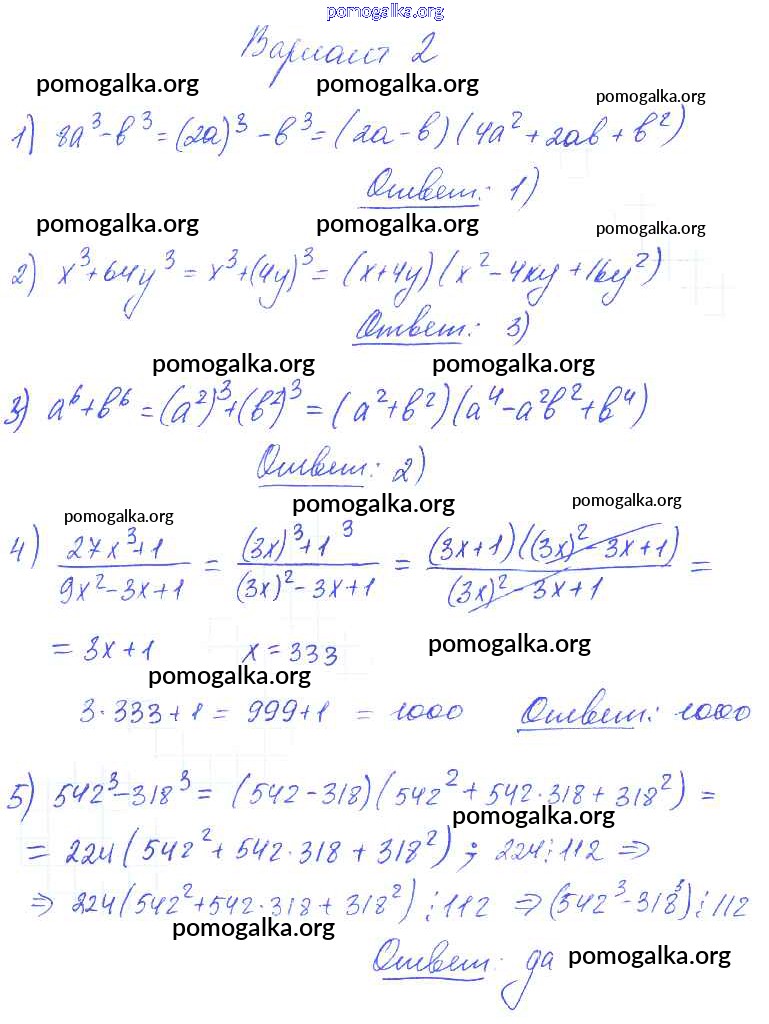 pomogalka.org
Вариант 2
pomogalka.org pomogalka.org pomogalka.org
1) 8a³-b³=(2a)³-b³=(2a-b)(4a²+2ab+b²)
Ответ: 1)
pomogalka.org pomogalka.org pomogalka.org
2) x³+64y³=x³+(4y)³=(x+4y)(x²-4xy+16y²)
Ответ: 3)
pomogalka.org pomogalka.org
3) a⁶+b⁶=(a²)³+(b²)³=(a²+b²)(a⁴-a²b²+b⁴)
Ответ: 2)
pomogalka.org pomogalka.org pomogalka.org
4) (27x³+1)/(9x²-3x+1) = ((3x)³+1³)/((3x)²-3x+1) = ((3x+1)((3x)²-3x+1))/((3x)²-3x+1) =
= 3x+1 x=333 pomogalka.org
pomogalka.org
3·333+1 = 999+1 = 1000 Ответ: 1000
5) 542³-318³ = (542-318)(542²+542·318+318²) =
pomogalka.org
= 224(542²+542·318+318²); 224⋮112 ⇒
⇒ 224(542²+542·318+318²)⋮112 ⇒ (542³-318³)⋮112
pomogalka.org
Ответ: да pomogalka.org